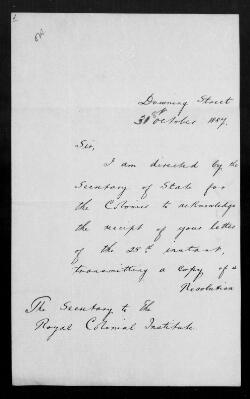 Downing Street
31st October 1887.
Sir,
I am directed by the
Secretary of State for
the Colonies to acknowledge
the receipt of your letter
of the 25th instant,
transmitting a copy of a
Resolution
The Secretary to the
Royal Colonial Institute.